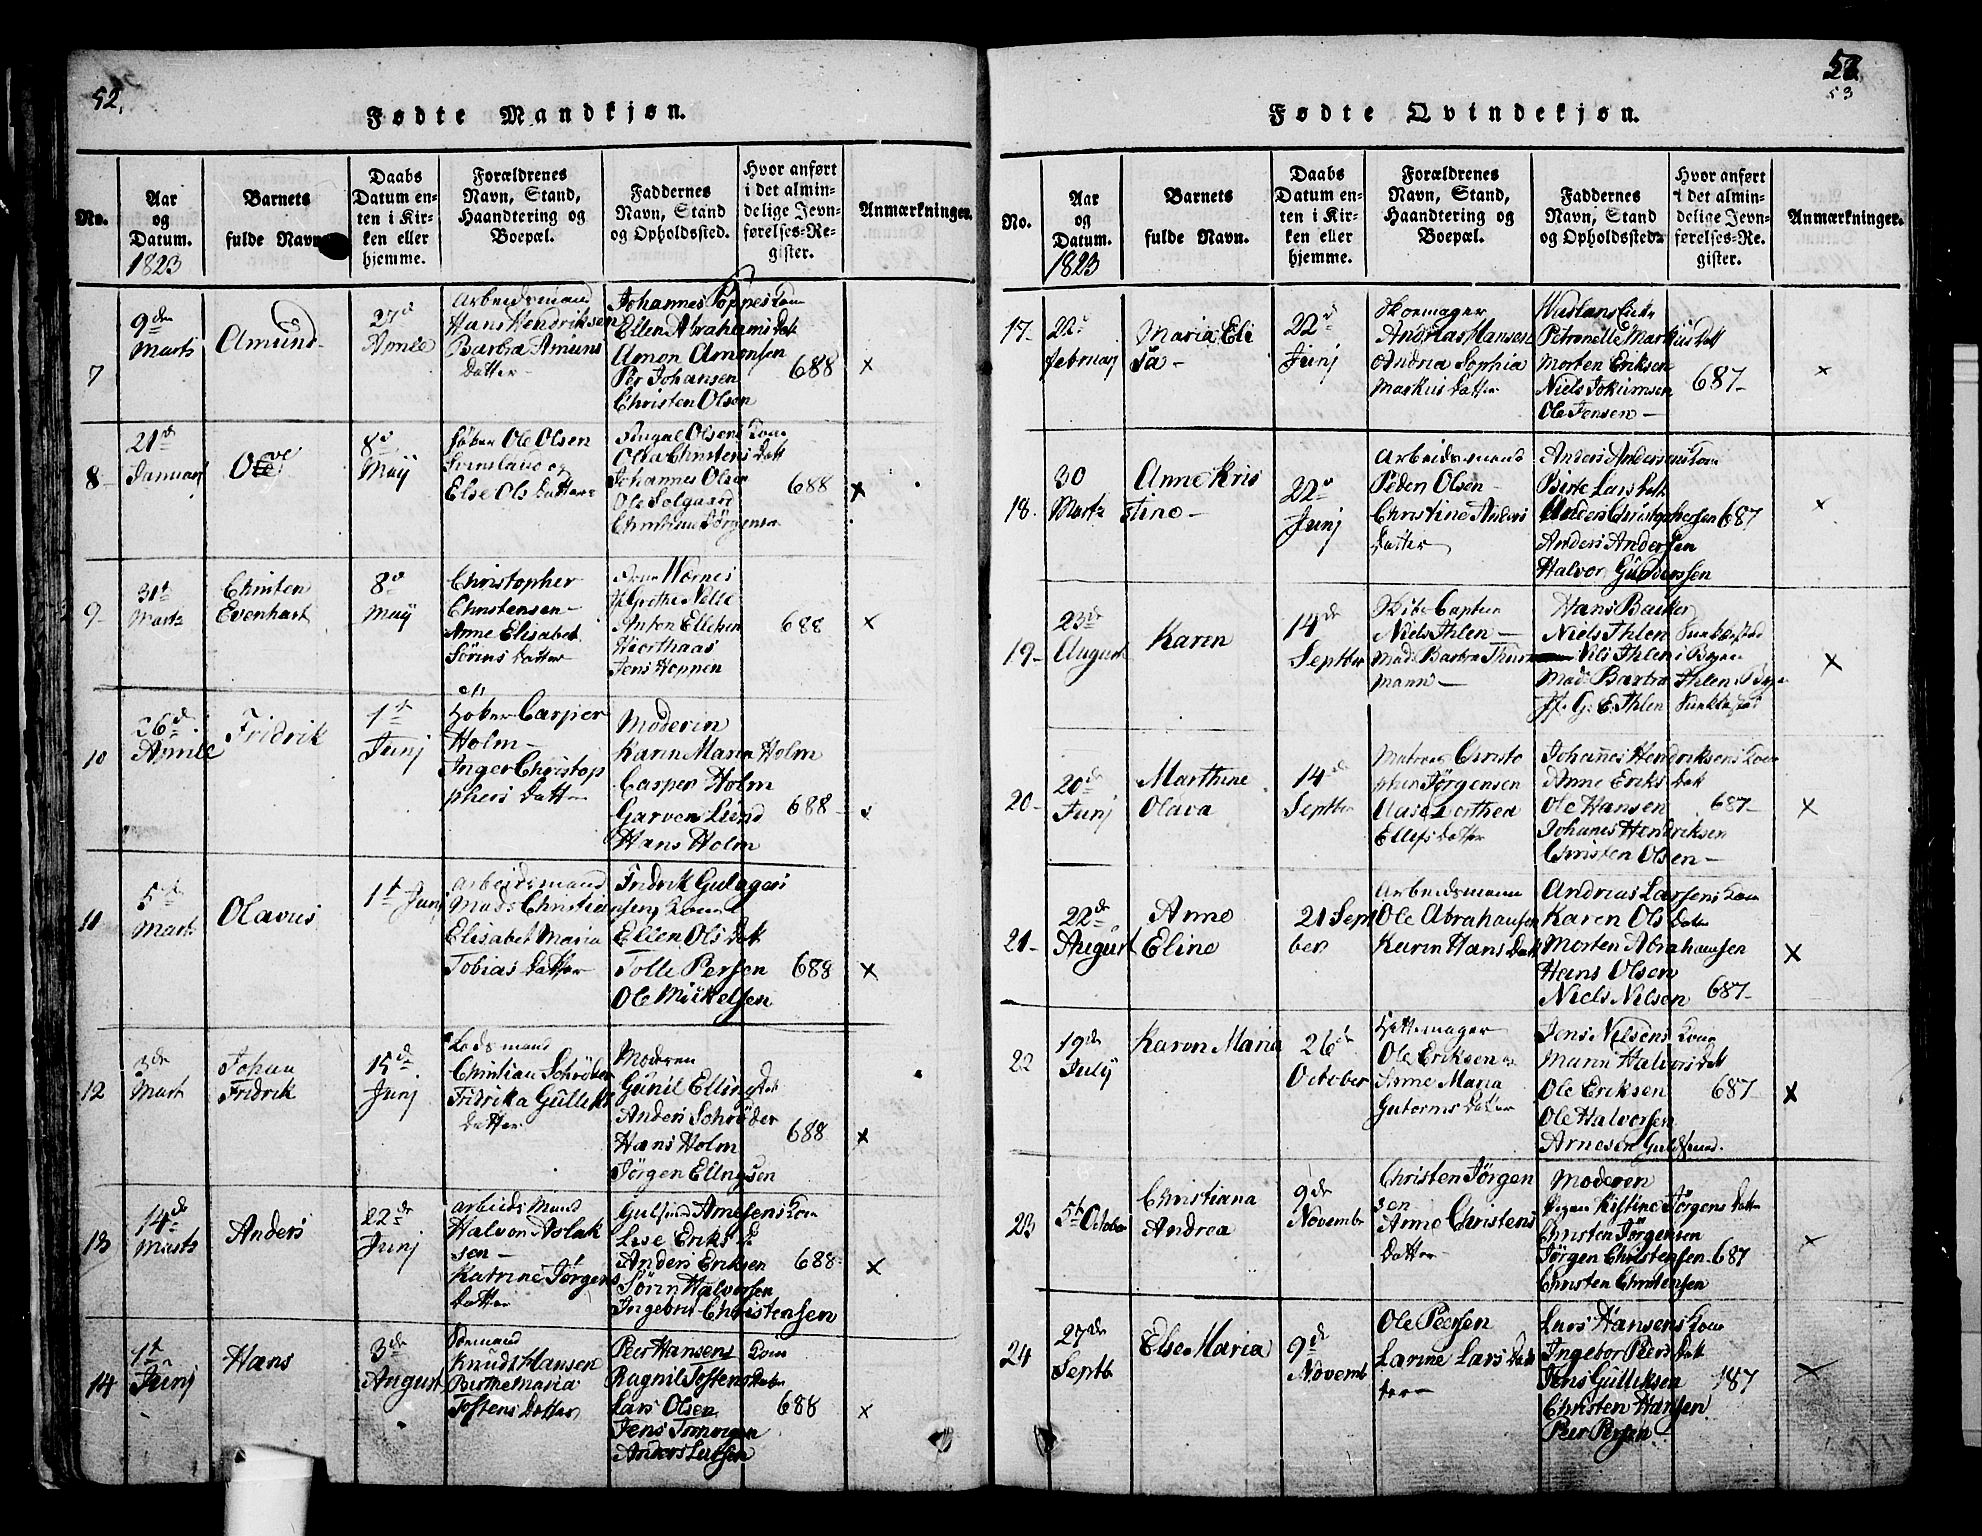 52.
Fødte Mandkjøn.
No.
Aar og Datum. 1823
Barnets fulde Navn
Daabs Datum enten i Kirken eller hjemme.
Forældrenes Navn, Stand, Haandtering og Boepæl.
Faddernes Navn, Stand og Opholdssted.
Hvor anført i det almindelige Jevnførelses-Register.
Anmærkninger.
7
9de Marts
Amund
27d Aprile
Arbeidsmand
Hans Hendriksen
Barbra Amuns
Datter
Johannes Toppes Kone
Ellen Abrahams Datt
Amon Amonsen
Per Johansen
Christen Olsen
688
x
8
21de Januarj
Ove
8d Maij
Ole Olsen
Else Ols Datter
Olea Christens Datt
Johannes Olsen
Ole Solgaard
Christian Jørgensen
688
x
9
31te Marts
Christen Evenhart
8d Maij
Christopher
Christensen
Anne Elisabet
Sørens Datter
Wornes
Anton Ellefsen
Hiorthaas
Jens Hoppen
688
x
10
26de Aprile
Fridrik
1t Junj
Casper
Holm
Inger Christop
phers Datter
Moderen
Karen Maria Holm
Casper Holm
Garven Lund
Hans Holm
688
11
5te Marts
Olavus
1t Junj
Arbeidsmand
Mads Christian
Elisabet Maria
Tobias Datter
Fridrik Gulagers
Ellen Ols Datt
Tolle Persen
Ole Mikkelsen
688
x
12
3de Marts
Johan Fridrik
15de Junj
Lodsmand
Christian Schrøder
Fridrika Gulleks
Datter
Moderen
Gunil Ellings Dat
Anders Schrøder
Hans Holm
Jørgen Ellingsen
688
x
13
14de Marts
Anders
22de Junj
Arbeids Mand
Halvon Aslak
sen
Katrine Jørgens
Datter
Gulsmed Arnesens Kone
Lise Eriks D
Anders Eriksen
Sørin Halvorsen
Ingebret Christensen
688
x
14
1t Junj
Hans
3de August
Sømand
Knud Hansen
Birthe Maria
Tostens Datter
Peer Hansens Kone
Ragnil Tostens Datter
Lars Olsen
Anders Larsen
688
x
53
Fødte Qvindekjøn.
No.
Aar og Datum. 1823
Barnets fulde Navn.
Daabs Datum enten i Kirken eller hjemme.
Forældrenes Navn, Stand, Haandtering og Boepæl.
Faddernes Navn, Stand og Opholdssted.
Hvor anført i det almindelige Jevnførelses-Register.
Anmærkninger.
17
22d februarj
Maria Eli
sa
22d Junj
Skomager
Andreas Hansen
Andrea Sophia
Markus Datter
Petronelle Markus Datt
Morten Eriksen
Niels Jokumsen
Ole Jensen
687
x
18
30 Marts
Anne Kris
tine
22d Junj
Arbeidsmand
Peder Olsen
Christine Anders
Datter
Anders Andersens Kone
Birte Lars Datt
Anders Christophersen
Anders Andersen
Halvor Gundersen
687
x
19
23de August
Karen
14de Septber
Skibs Captein
Niels Ihlen
Mad. Barbra Thur
mann
Hans Barker
Niels Ihlen
Nils Ihlen i
Mad. Barbra Ihlen
G. E. Ihlen
x
20
20de Junj
Marthine Olava
14de Septber
Matros Christo
pher Jørgensen
Aase Dorthea
Ellefs Datter
Johannes Hendriksens Kone
Anne Eriks Datt
Ole Hansen
Johanes Hendriksen
Christen Olsen
687
x
21
22de August
Anne Eline
21 Septber
Arbeidsmann
Ole Abrahansen
Karen Hans Datt
Andreas Larsens Kone
Karen Ols Dater
Morten Abrahansen
Hans Olsen
Niels Nilsen
687
x
22
19de July
Karen Maria
26de October
Hattemager
Ole Eriksen
Anne Maria
Gutorms Datter
Jens Nilsens Kone
Maren Halvors Datt
Ole Eriksen
Ole Halvorsen
Arnesen Guldsmed.
687
x
23
5t October
Christiana Andrea
9de Novembr
Christen Jørgen
sen
Anne Christens
Datter
Moderen
Pigen Kistine Jørgens Datter
Christen Jørgensen
Jørgen Christensen
Christen Christensen
687
x
24
27de Septb
Else Maria
9de Novemb
Ole Peersen
Larine Lars Dat
ter
Lars Hansens Kone
Ingebor Peers Datt
Jens Gulliksen
Christen Hansen
Peer Persen
187
x